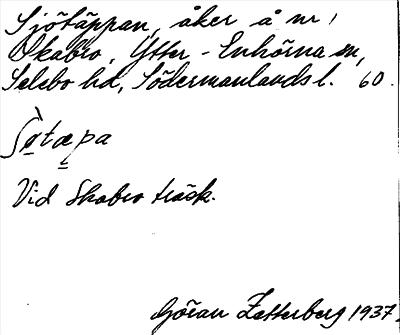 Sjötäppan, åker å nr 1
Ekabro, Ytter-Enhörna sn,
Selebo hd, Södermanlands l. 60.
tæpa
Vid Skabro träsk.
Göran Zetterberg 1937.